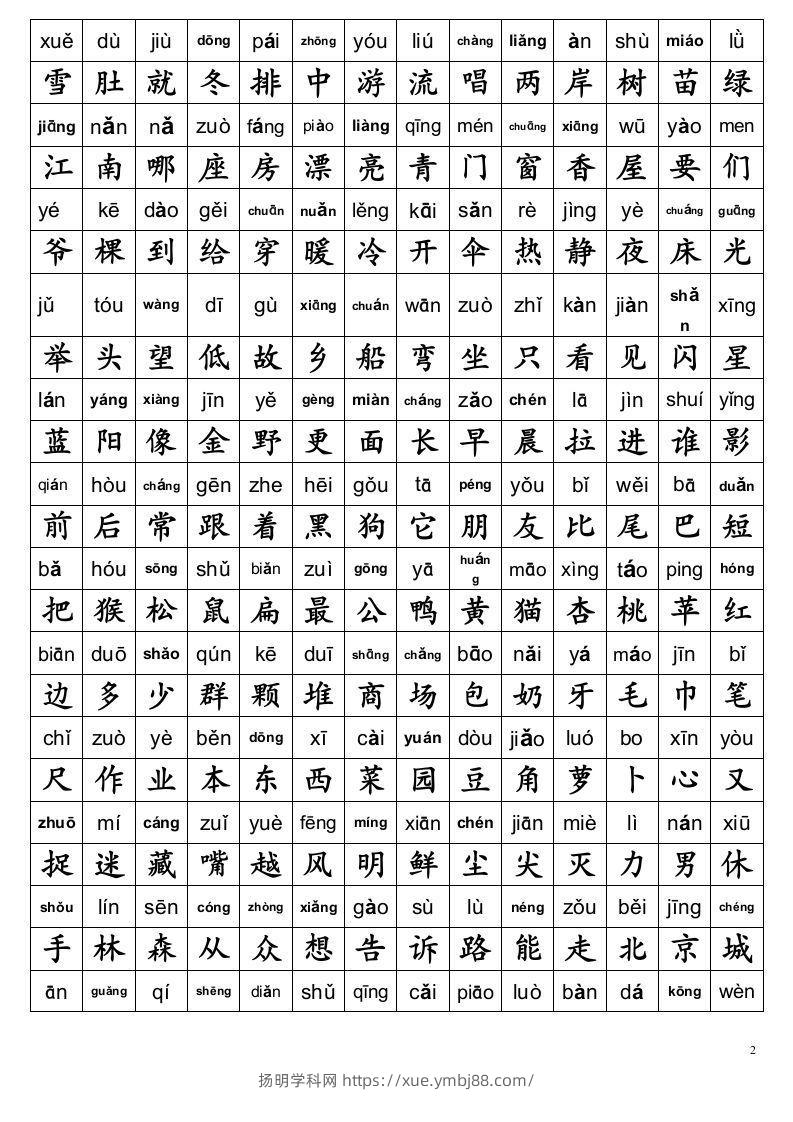 xuě dù jiù dōng pái zhōng yóu liú chàng liǎng àn shù miáo lǜ
雪 肚 就 冬 排 中 游 流 唱 两 岸 树 苗 绿
jiāng nǎn nǎ zuò fáng piào liàng qīng mén chuāng xiāng wū yào men
江 南 哪 座 房 漂 亮 青 门 窗 香 屋 要 们
yé kē dào gěi chuān nuǎn lěng kāi sǎn rè jìng yè chuáng guāng
爷 棵 到 给 穿 暖 冷 开 伞 热 静 夜 床 光
jǔ tóu wàng dī gù xiāng chuán wān zuò zhǐ kàn jiàn shǎn xīng
举 头 望 低 故 乡 船 弯 坐 只 看 见 闪 星
lán yáng xiàng jīn yě gèng miàn cháng zǎo chén lā jìn shuí yǐng
蓝 阳 像 金 野 更 面 长 早 晨 拉 进 谁 影
qián hòu cháng gēn zhe hēi gǒu tā péng yǒu bǐ wěi bā duǎn
前 后 常 跟 着 黑 狗 它 朋 友 比 尾 巴 短
bǎ hóu sōng shǔ biǎn zuì gōng yā huáng māo xìng táo ping hóng
把 猴 松 鼠 扁 最 公 鸭 黄 猫 杏 桃 苹 红
biān duō shǎo qún kē duī shāng chǎng bāo nǎi yá máo jīn bǐ
边 多 少 群 颗 堆 商 场 包 奶 牙 毛 巾 笔
chǐ zuò yè běn dōng xī cài yuán dòu jiǎo luó bo xīn yòu
尺 作 业 本 东 西 菜 园 豆 角 萝 卜 心 又
zhuō mí cáng zuǐ yuè fēng míng xiān chén jiān miè lì nán xiū
捉 迷 藏 嘴 越 风 明 鲜 尘 尖 灭 力 男 休
shǒu lín sēn cóng zhòng xiǎng gào sù lù néng zǒu běi jīng chéng
手 林 森 从 众 想 告 诉 路 能 走 北 京 城
ān guǎng qí shēng diǎn shǔ qīng cǎi piāo luò bàn dá kōng wèn
2
扬明学科网 https://xue.ymbj88.com/